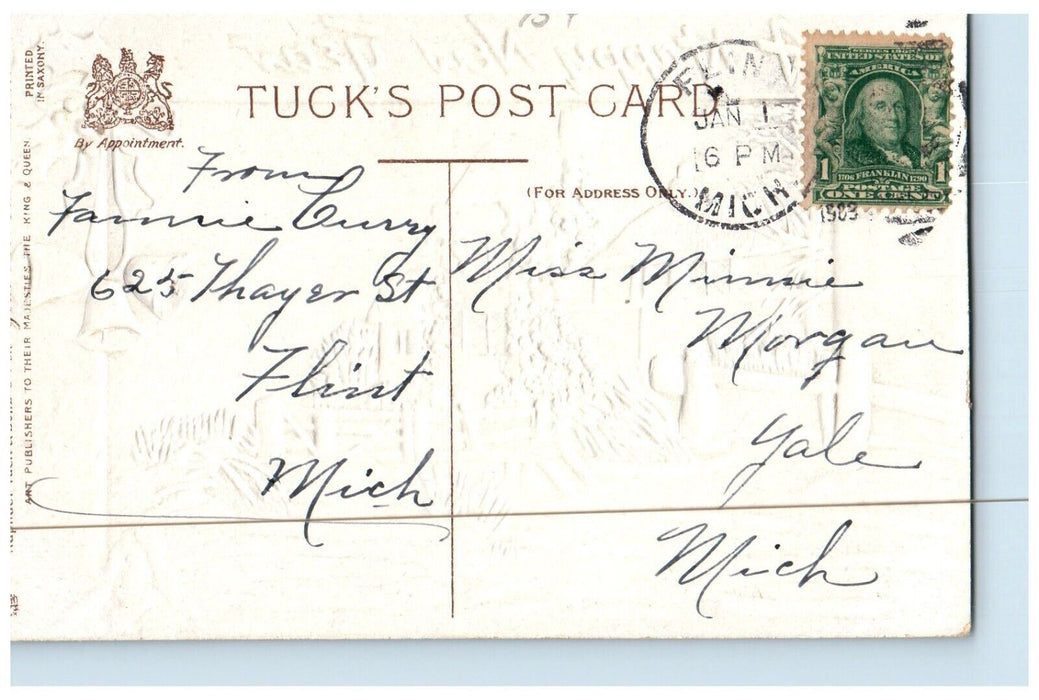 PRINTED
IN SAXONY.
By Appointment.
TUCK'S POST CARD
(FOR ADDRESS ONLY.)
ART PUBLISHERS TO THEIR MAJESTIES THE KING & QUEEN
FLINT
JAN 1
6 PM
MICH
1909
SERIES 1902
UNITED STATES OF
AMERICA
1706 FRANKLIN 1790
POSTAGE
1 ONE CENT 1
From
Fannie Curry
625 Thayer St
Flint
Mich
Miss Minnie
Morgan
Yale
Mich